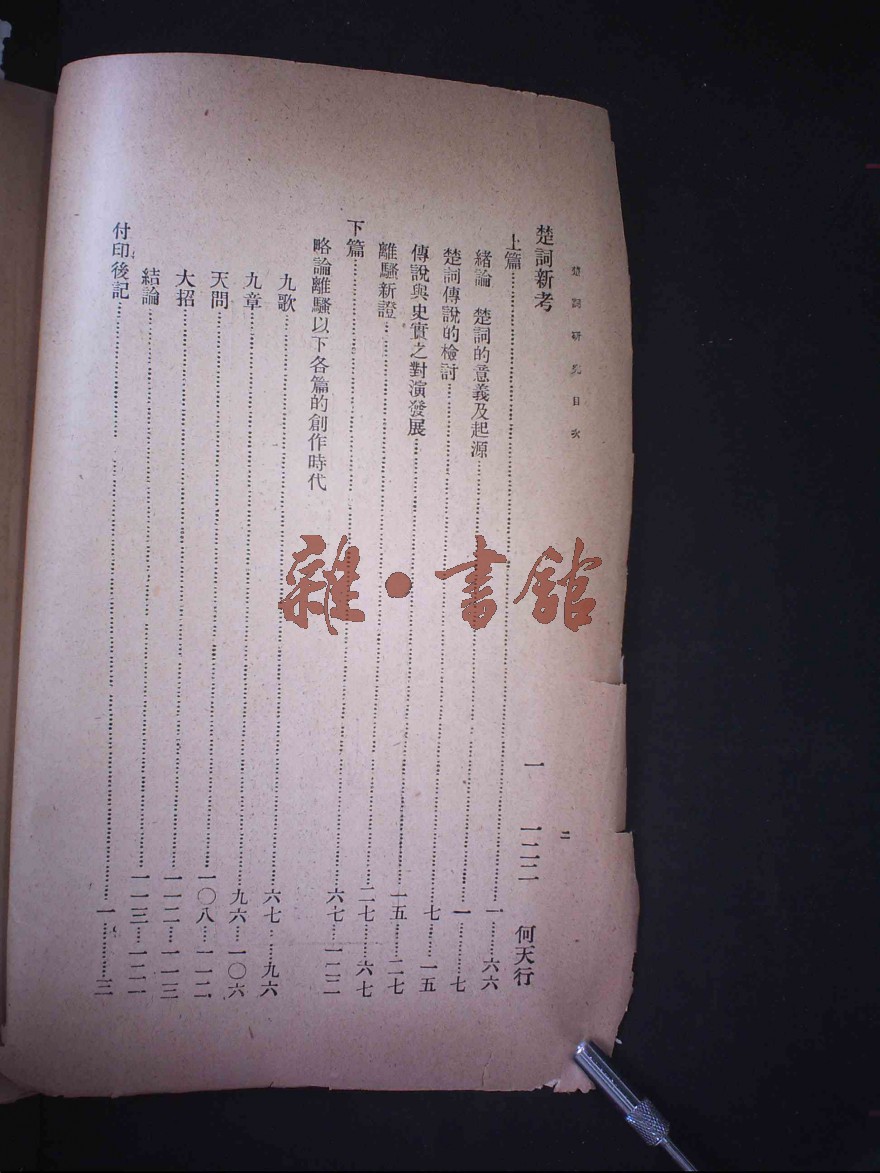 楚詞研究目次 二
楚詞新考 一 一二二 何天行
上篇……一……六六
緒論 楚詞的意義及起源……一……七
楚詞傳說的檢討……七……一五
傳說與史實之對演發展……一五……二七
離騷新證……二七……六七
下篇……六七……一二二
略論離騷以下各篇的創作時代
九歌……六七……九六
九章……九六……一〇六
天問……一〇八……一一二
大招……一一二……一一三
結論……一一三……一二一
付印後記……一……三
雜·書館